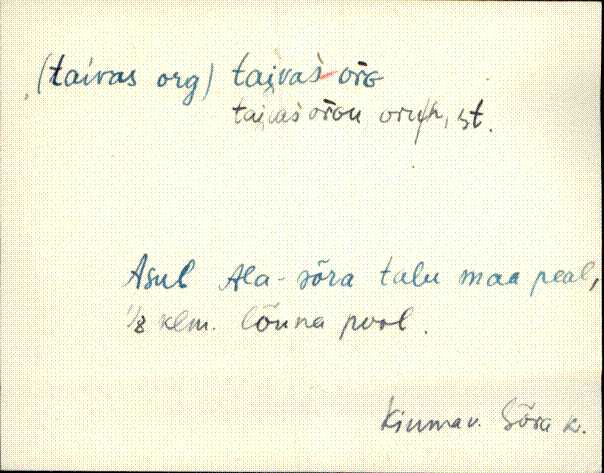 (taivas org) tai̯vas̀ or̄G
tai̯vas̀ or̄Gu st.
Asub Ala-sõra talu maa peal,
1/2 klm. lõuna pool.
Kiumav. Sõra k.